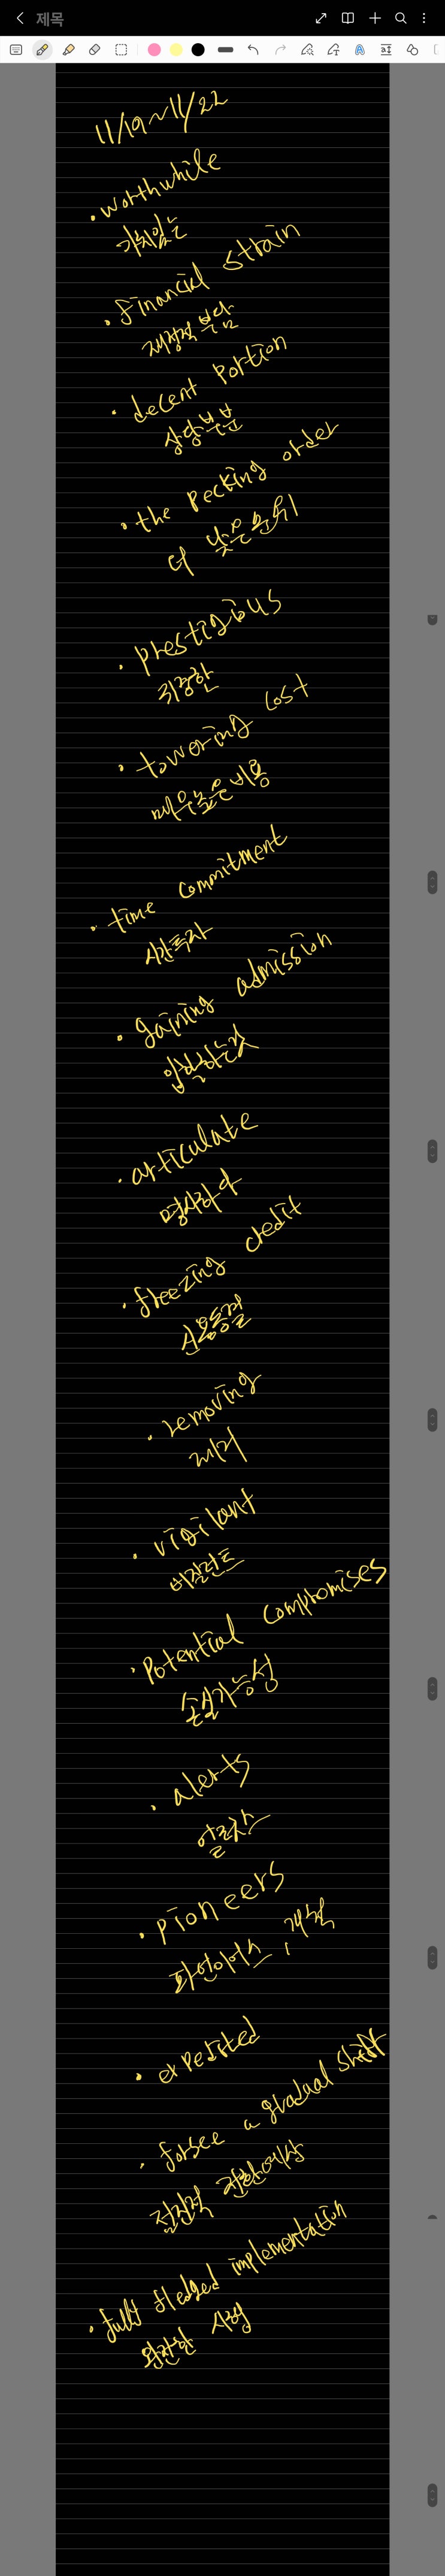 제목
11/19~11/22
· worthwhile
가치있는
· financial strain
재정적 부담
· decent portion
상당부분
· the pecking order
더 낮은 순위
· prestigious
· towering cost
매우높은 비용
· time commitment
시간투자
· gaining admission
입학하는것
· articulate
명시하다
· freezing credit
신용동결
· removing
제거
· vigilant
비질런트
· Potential compromises
손실가능성
· alerts
얼러츠
· pioneers
파이어니어스, 개척
· expedited
· forsee a gradual shift
점진적 전환예상
· fully fledged implementation
완전한 시행